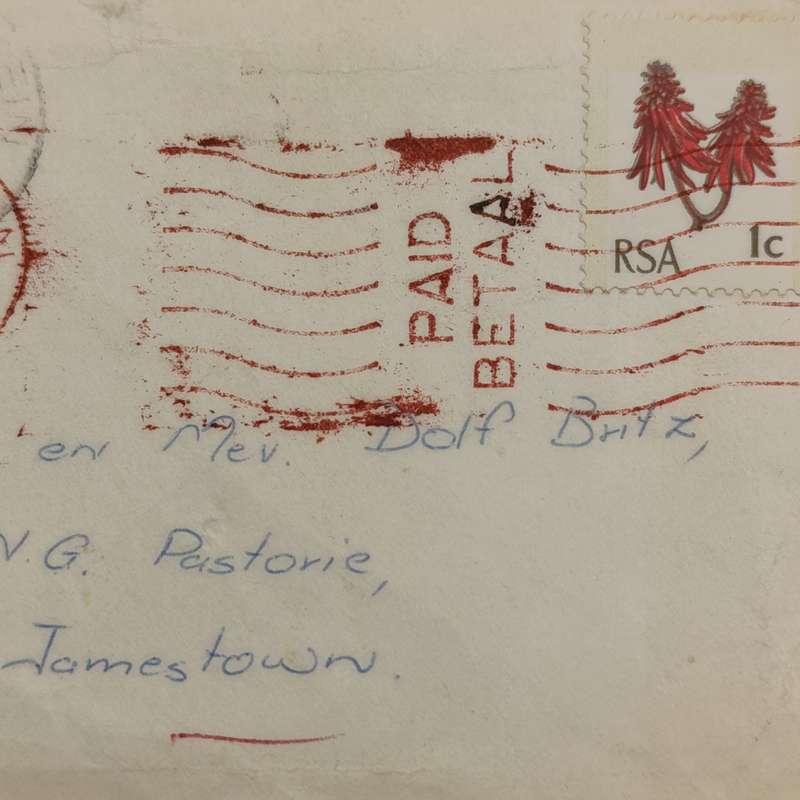 RSA 1c
PAID
BETAAL
en Mev. Dolf Britz,
N.G. Pastorie,
Jamestown.